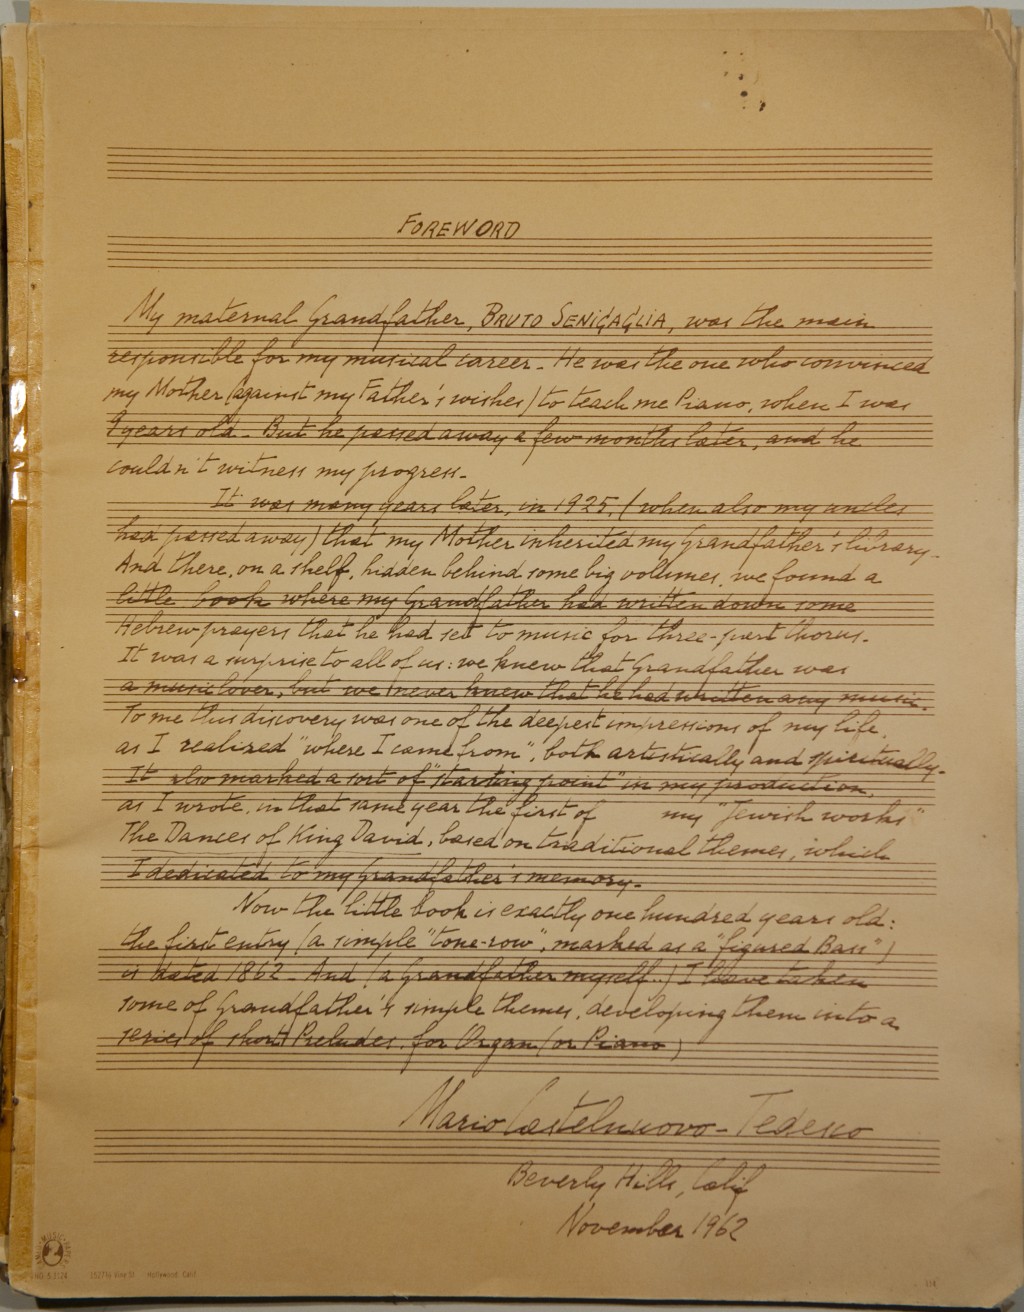 FOREWORD
My maternal Grandfather, BRUTO SENIGAGLIA, was the main
responsible for my musical career. He was the one who convinced
my Mother (against my Father's wishes) to teach me Piano, when I was
9 years old. But he passed away a few months later, and he
couldn't witness my progress.
It was many years later, in 1925, (when also my uncles
had passed away) that my Mother inherited my Grandfather's library.
And there, on a shelf, hidden behind some big volumes, we found a
little book where my Grandfather had written down some
Hebrew prayers that he had set to music for three-part chorus.
It was a surprise to all of us: we knew that Grandfather was
a music lover, but we never knew that he had written any music.
To me this discovery was one of the deepest impressions of my life,
as I realized "where I came from", both artistically and spiritually.
It also marked a sort of "starting point" in my production,
as I wrote, in that same year the first of my "Jewish works"
The Dances of King David, based on traditional themes, which
I dedicated to my Grandfather's memory.
Now the little book is exactly one hundred years old:
the first entry (a simple "tone-row", marked as a "figured Bass")
is dated 1862. And (a Grandfather myself..) I have taken
some of Grandfather's simple themes, developing them into a
series of short Preludes, for Organ (or Piano)
Mario Castelnuovo-Tedesco
Beverly Hills, Calif
November 1962
1527½ Vine St. Hollywood, Calif.